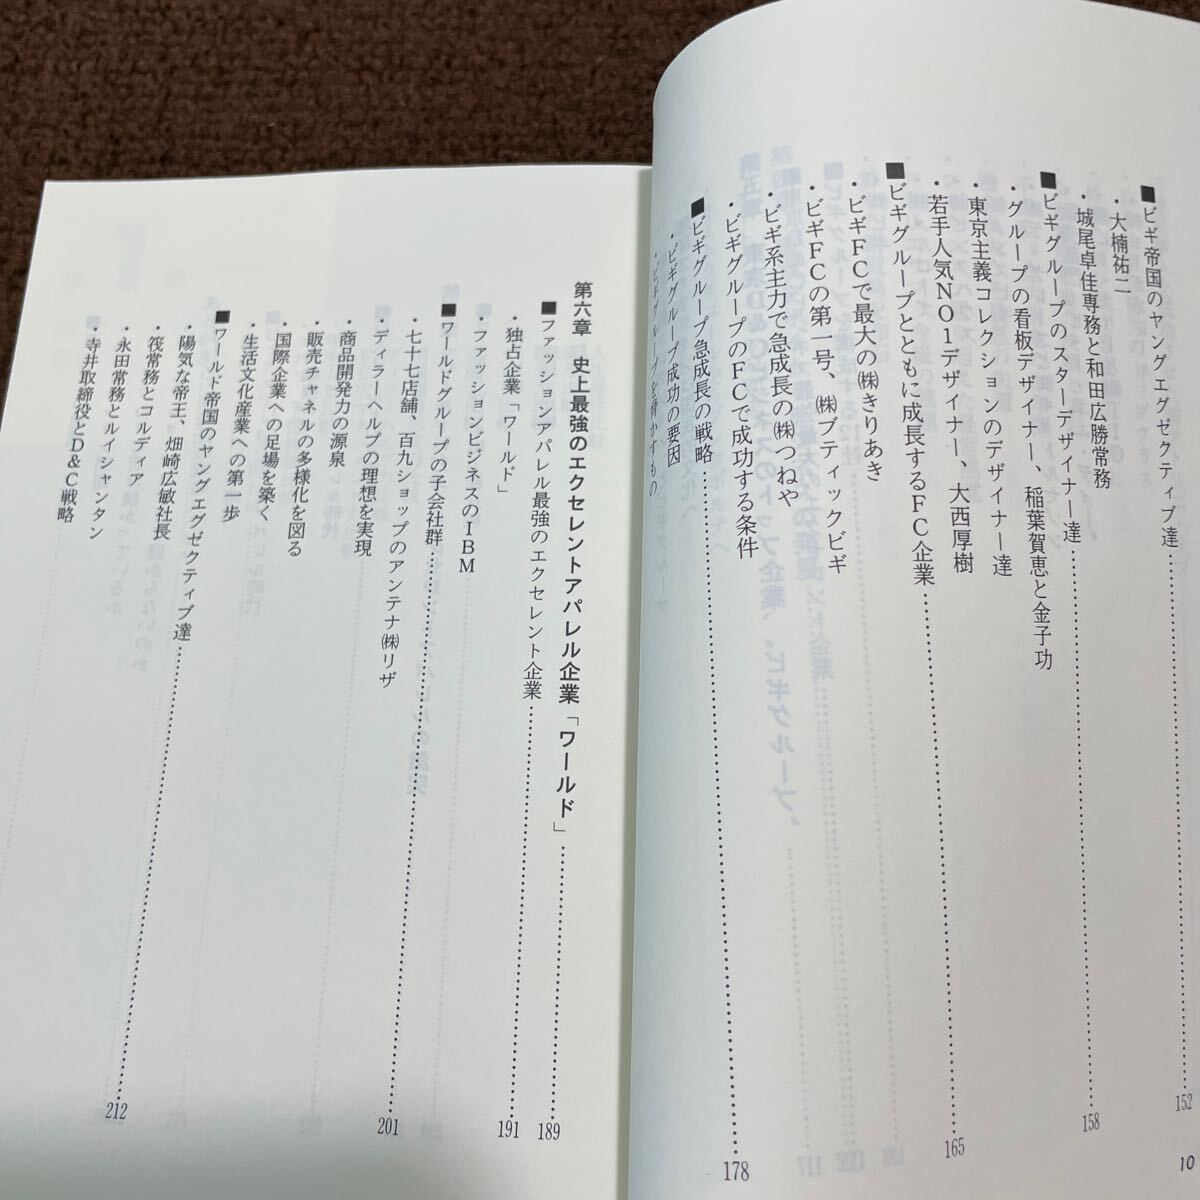 ■ビギ帝国のヤングエグゼクティブ達………152
・大楠祐二
・城尾卓佳専務と和田広勝常務
■ビギグループのスターデザイナー達………158
・グループの看板デザイナー、稲葉賀恵と金子功
・東京主義コレクションのデザイナー達
・若手人気NO1デザイナー、大西厚樹
■ビギグループとともに成長するFC企業………165
・ビギFCで最大の㈱きりあき
・ビギFCの第一号、㈱ブティックビギ
・ビギ系主力で急成長の㈱つねや
・ビギグループのFCで成功する条件
■ビギグループ急成長の戦略………178
・ビギグループ成功の要因
・ビギグループを脅かすもの
10
第六章 史上最強のエクセレントアパレル企業「ワールド」………189
■ファッションアパレル最強のエクセレント企業………191
・独占企業「ワールド」
・ファッションビジネスのIBM
■ワールドグループの子会社群………201
・七十七店舗、百九ショップのアンテナ㈱リザ
・ディラーヘルプの理想を実現
・商品開発力の源泉
・販売チャネルの多様化を図る
・国際企業への足場を築く
・生活文化産業への第一歩
■ワールド帝国のヤングエグゼクティブ達………212
・陽気な帝王、畑崎広敏社長
・筏常務とコルディア
・永田常務とルイシャンタン
・寺井取締役とD&C戦略